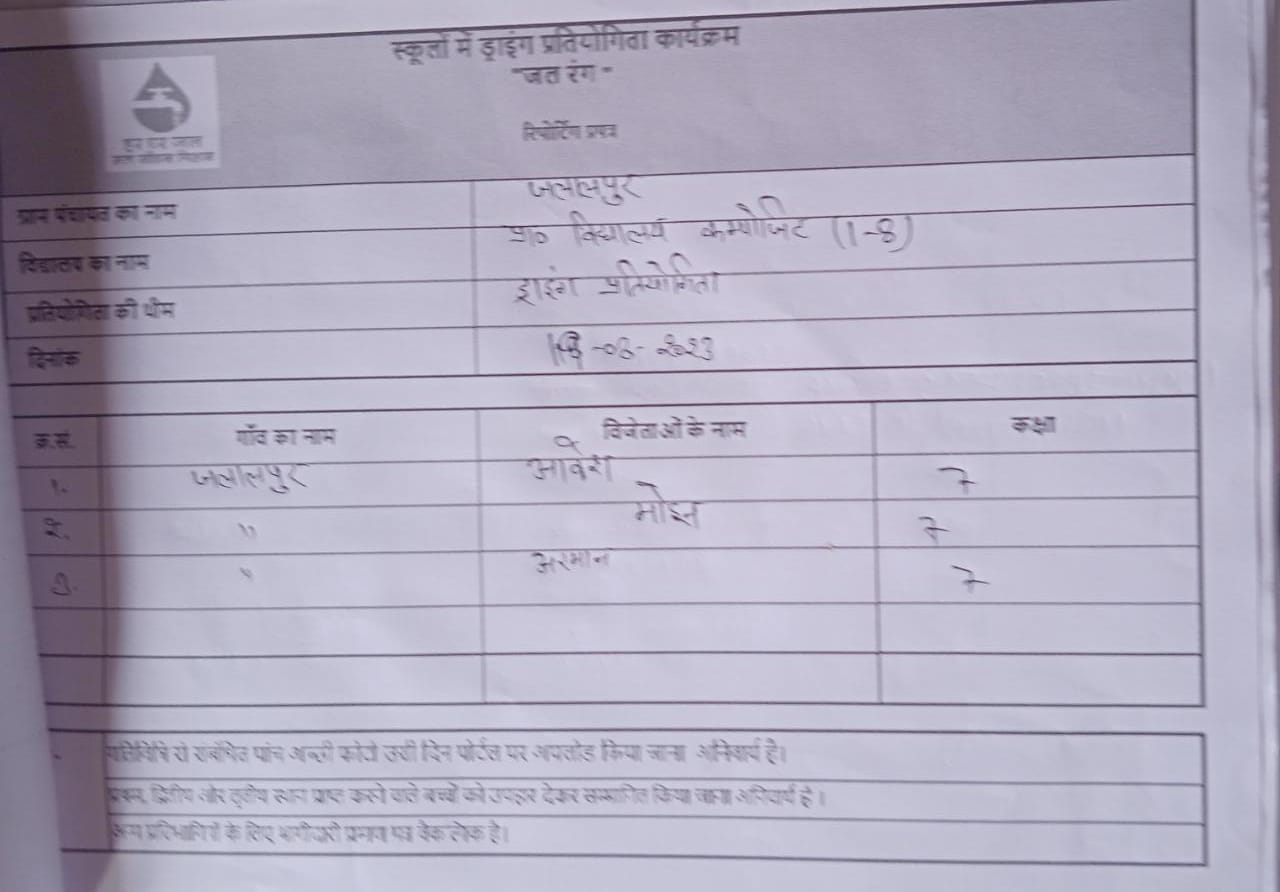 स्कूलों में ड्राइंग प्रतियोगिता कार्यक्रम
"जल रंग"
रिपोर्टिंग प्रपत्र
हर घर जल
जल जीवन मिशन
ग्राम पंचायत का नाम जलालपुर
विद्यालय का नाम प्रा० विद्यालय कम्पोजिट (1-8)
प्रतियोगिता की थीम ड्राइंग प्रतियोगिता
दिनांक -08-2023
क्र.सं. गाँव का नाम विजेताओं के नाम कक्षा
१. जलालपुर आवेश 7
२. " 7
३. " अरमान 7
गतिविधि से संबंधित पांच अच्छी फोटो उसी दिन पोर्टल पर अपलोड किया जाना अनिवार्य है।
प्रथम, द्वितीय और तृतीय स्थान प्राप्त करने वाले बच्चों को उपहार देकर सम्मानित किया जाना अनिवार्य है।
अन्य प्रतिभागियों के लिए भागीदारी प्रमाण पत्र वैकल्पिक है।